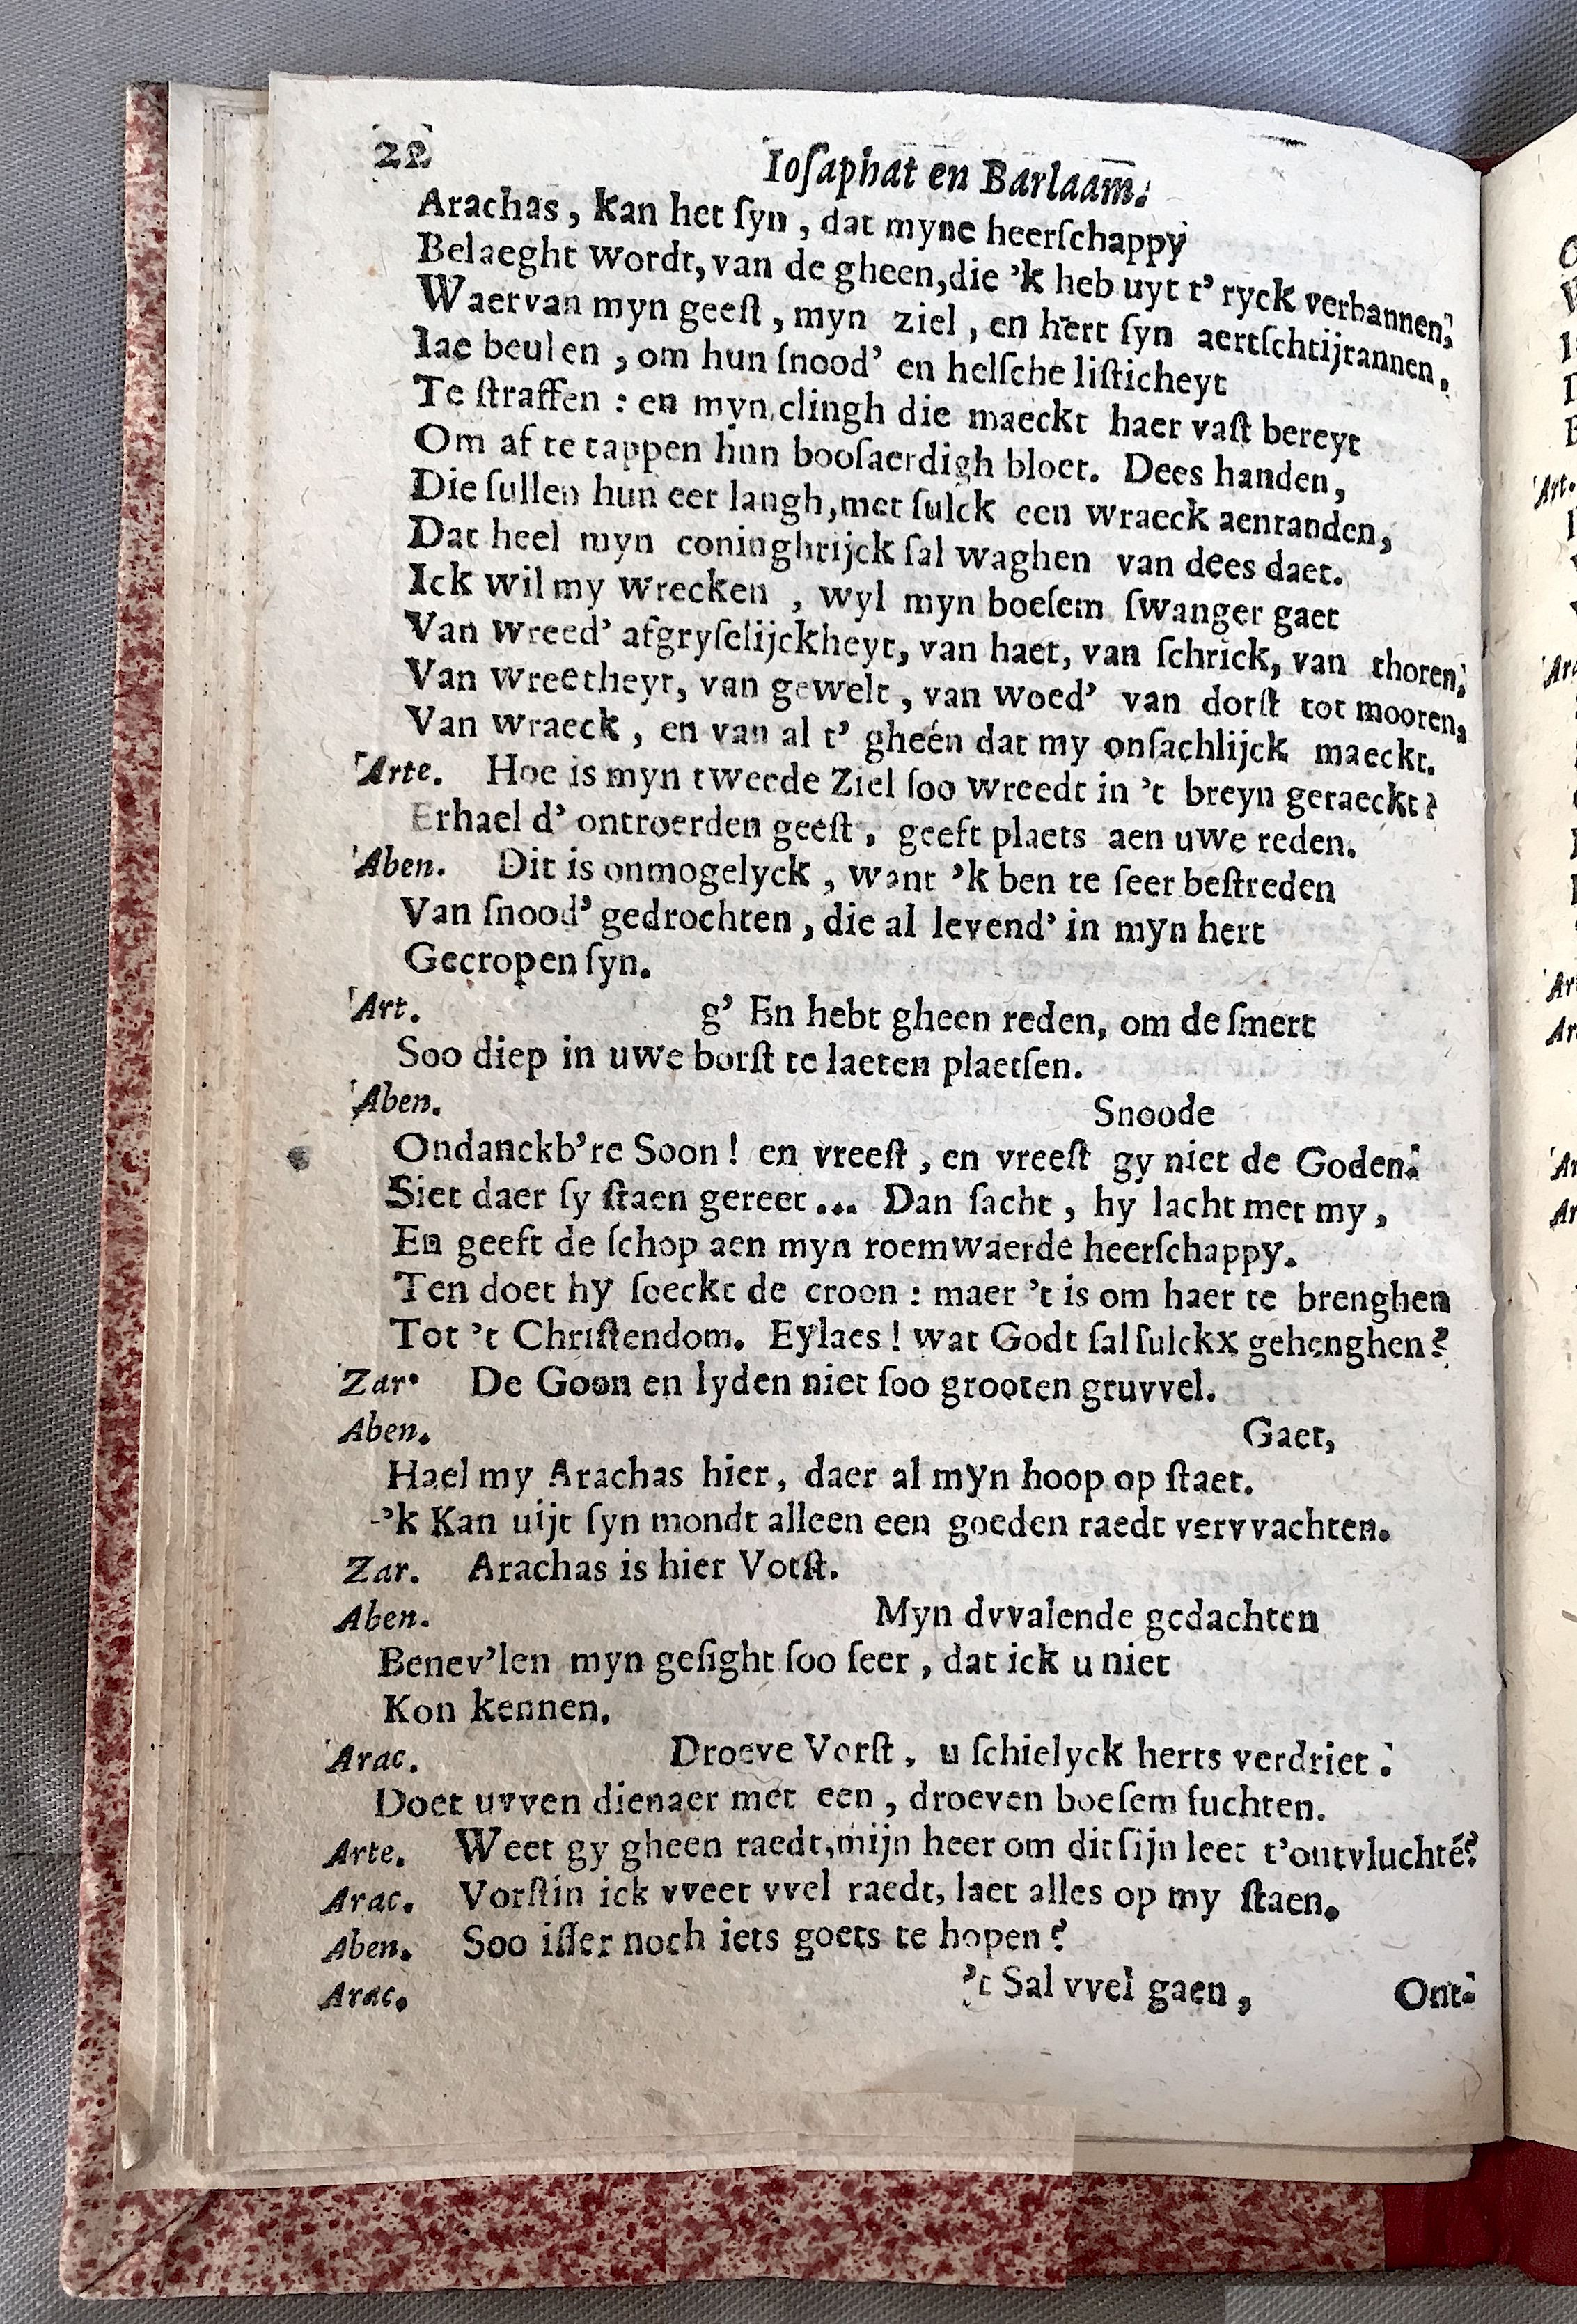 22
Ioſaphat en Barlaam.
Arachas, kan het ſyn, dat myne heerſchappy
Belaeght wordt, van de gheen, die 'k heb uyt t' ryck verbannen,
Waervan myn geeſt, myn ziel, en hert ſyn aertſchtijrannen,
Iae beulen, om hun ſnood' en helſche liſticheyt
Te ſtraffen : en myn clingh die maeckt haer vaſt bereyt
Om af te tappen hun booſaerdigh bloet. Dees handen,
Die ſullen hun eer langh, met ſulck een wraeck aenranden,
Dat heel myn coninghrijck ſal waghen van dees daet.
Ick wil my wrecken, wyl myn boeſem ſwanger gaet
Van wreed' afgryſelijckheyt, van haet, van ſchrick, van thoren,
Van wreetheyt, van gewelt, van woed' van dorſt tot mooren,
Van wraeck, en van al t' gheén dat my onſachlijck maeckt.
Arte. Hoe is myn tweede Ziel ſoo wreedt in 't breyn geraeckt?
Erhael d' ontroerden geeſt, geeft plaets aen uwe reden.
Aben. Dit is onmogelyck, want 'k ben te ſeer beſtreden
Van ſnood' gedrochten, die al levend' in myn hert
Gecropen ſyn.
Art. g' En hebt gheen reden, om de ſmert
Soo diep in uwe borſt te laeten plaetſen.
Aben. Snoode
Ondanckb're Soon! en vreeſt, en vreeſt gy niet de Goden.
Siet daer ſy ſtaen gereet... Dan ſacht, hy lacht met my,
En geeft de ſchop aen myn roemwaerde heerſchappy.
Ten doet hy ſoeckt de croon : maer 't is om haer te brenghen
Tot 't Chriſtendom. Eylaes! wat Godt ſal ſulckx gehenghen?
Zar. De Goon en lyden niet ſoo grooten gruvvel.
Aben. Gaet,
Hael my Arachas hier, daer al myn hoop op ſtaet.
-'k Kan uijt ſyn mondt alleen een goeden raedt vervvachten.
Zar. Arachas is hier Votſt.
Aben. Myn dvvalende gedachten
Benev'len myn geſight ſoo ſeer, dat ick u niet
Kon kennen.
Arac. Droeve Vorſt, u ſchielyck herts verdriet.
Doet uvven dienaer met een, droeven boeſem ſuchten.
Arte. Weet gy gheen raedt, mijn heer om dit ſijn leet t'ontvluchté?
Arac. Vorſtin ick vveet vvel raedt, laet alles op my ſtaen.
Aben. Soo iſſer noch iets goets te hopen?
Arac. 't Sal vvel gaen,
Ont-